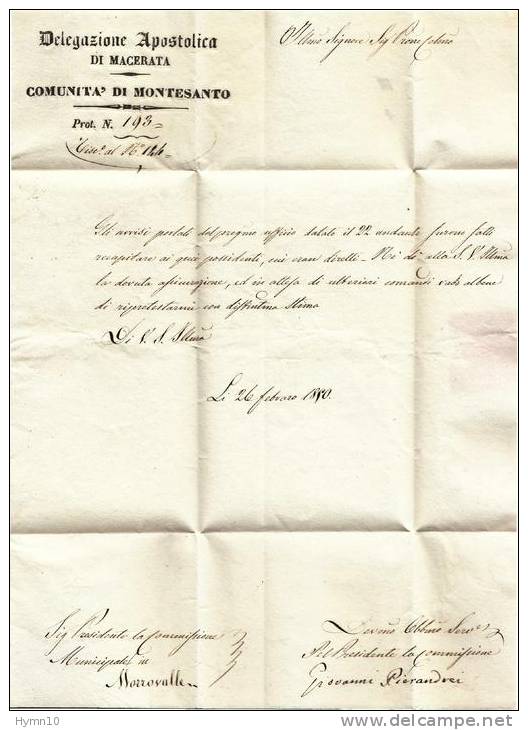 Delegazione Apostolica
DI MACERATA
COMUNITA' DI MONTESANTO
Prot. N. 193
Risc.ª al N.º 124
Illmo Signore Sig Prone Colmo
Gli avvisi portati dal pregmo uffizio datato il 22 andante furono fatti
recapitare ai quei possidenti, cui eran diretti. Ne dò alla S. V. Illma
la dovuta assicurazione, ed in attesa di ulteriori comandi
di riprotestarmi con distintma stima
Di V. S. Illma
Li 26 febraro 1850.
Sig Presidente la Commissione
Municipale in
Morrovalle
Devmo Obbmo Serve
Pel Presidente la Commissione
Giovanni Pierandrei
Hymn10
delcampe.net